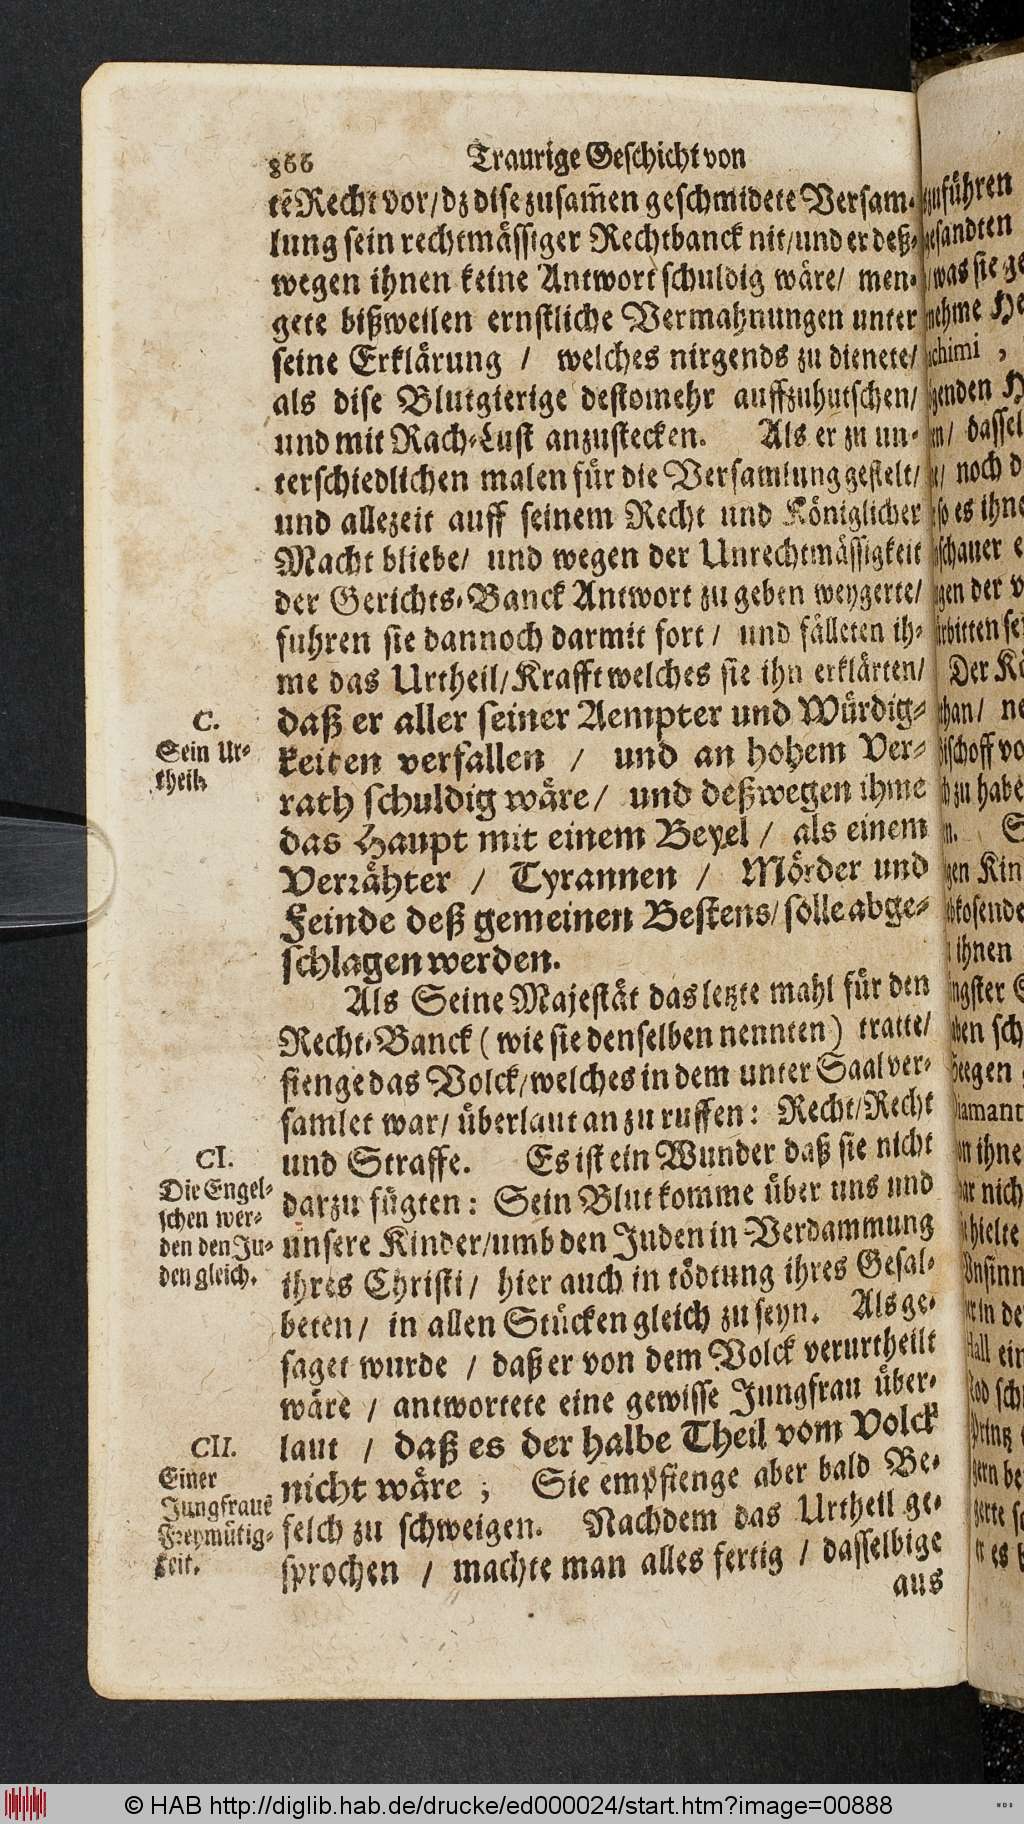 866 Traurige Geschicht von
tẽ Recht vor/ dz dise zusam̃en geschmidete Versam-
lung sein rechtmässiger Rechtbanck nit/ und er deß-
wegen ihnen keine Antwort schuldig wäre/ men-
gete bißweilen ernstliche Vermahnungen unter
seine Erklärung / welches nirgends zu dienete/
als dise Blutgierige destomehr auffzuhutschen/
und mit Rach-Lust anzustecken. Als er zu un-
terschiedlichen malen für die Versamlung gestelt/
und allezeit auff seinem Recht und Königlicher
Macht bliebe/ und wegen der Unrechtmässigkeit
der Gerichts-Banck Antwort zu geben weygerte/
fuhren sie dannoch darmit fort/ und fälleten ih-
me das Urtheil/ Krafft welches sie ihn erklärten/
C.
Sein Ur-
theil.
daß er aller seiner Aempter und Würdig-
keiten verfallen / und an hohem Ver-
rath schuldig wäre/ und deßwegen ihme
das Haupt mit einem Beyel/ als einem
Verrähter / Tyrannen / Mörder und
Feinde deß gemeinen Bestens/ solle abge-
schlagen werden.
Als Seine Majestät das letzte mahl für den
Recht-Banck (wie sie denselben nennten) tratte/
fienge das Volck/ welches in dem unter Saal ver-
samlet war/ überlaut an zu ruffen: Recht/ Recht
und Straffe. Es ist ein Wunder daß sie nicht
CI.
Die Engel-
schen wer-
den den Ju-
den gleich.
darzu fügten: Sein Blut komme über uns und
unsere Kinder/ umb den Juden in Verdammung
ihres Christi/ hier auch in tödtung ihres Gesal-
beten/ in allen Stücken gleich zu seyn. Als ge-
saget wurde / daß er von dem Volck verurtheilt
wäre / antwortete eine gewisse Jungfrau über-
laut / daß es der halbe Theil vom Volck
nicht wäre ; Sie empfienge aber bald Be-
CII.
Einer
Jungfrauẽ
Freymütig-
keit.
felch zu schweigen. Nachdem das Urtheil ge-
sprochen / machte man alles fertig / dasselbige
aus
© HAB http://diglib.hab.de/drucke/ed000024/start.htm?image=00888